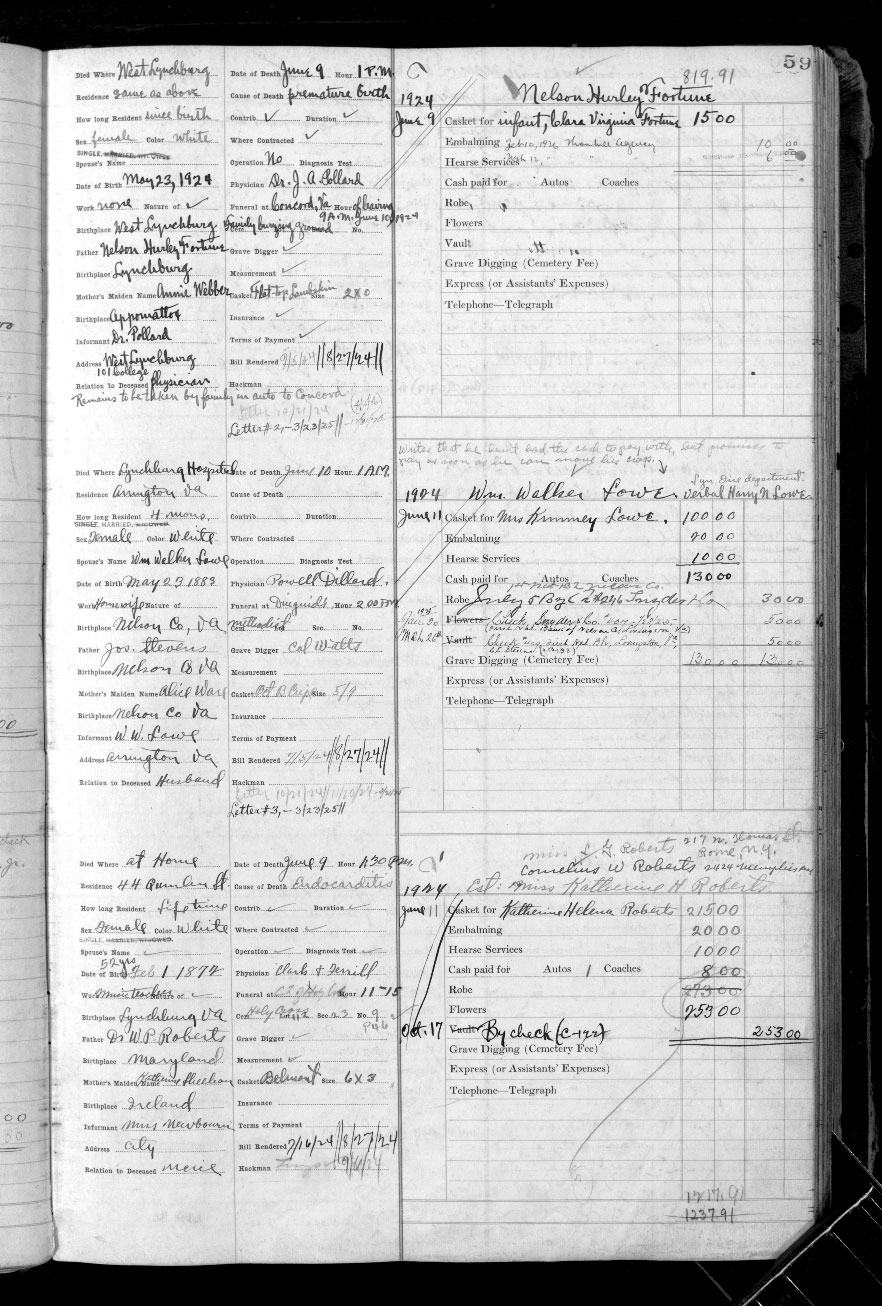 59
819.91
Died Where West Lynchburg Date of Death June 9 Hour 1 P.M.
Residence same as above Cause of Death premature birth
How long Resident since birth Contrib ✓ Duration ✓
Sex female Color white Where Contracted ✓
SINGLE, MARRIED, WIDOWED
Spouse's Name Operation No Diagnosis Test
Date of Birth May 23, 1924 Physician Dr. J. A. Pollard
Work none Nature of ✓ Funeral at Concord, Va Hour of leaving
9 A.M. June 10, 1924
Birthplace West Lynchburg Cem. Family burying ground No.
Father Nelson Hurley Fortune Grave Digger ✓
Birthplace Lynchburg Measurement ✓
Mother's Maiden Name Annie Webber Casket Flat top Lambskin Size 2x0
Birthplace Appomattox Insurance ✓
Informant Dr. Pollard Terms of Payment ✓
Address West Lynchburg Bill Rendered 7/5/24 || 8/27/24 ||
101 College
Relation to Deceased Physician Hackman
Remains to be taken by family in auto to Concord
Letter 10/21/24
Letter #2, - 3/23/25 ||
Nelson Hurley Fortune
1924
June 9 Casket for infant, Clara Virginia Fortune 15 00
Embalming Feb 10, 1926 10 00
Hearse Services 6 00
Cash paid for Autos Coaches
Robe
Flowers
Vault
Grave Digging (Cemetery Fee)
Express (or Assistants' Expenses)
Telephone—Telegraph
Writes that he hasn't had the cash to pay with, but promises to
pay as soon as he can move his crop.
Died Where Lynchburg Hospital Date of Death June 10 Hour 1 A.M.
Residence Arrington Va Cause of Death
How long Resident 4 mons. Contrib Duration
SINGLE, MARRIED, WIDOWED
Sex Female Color White Where Contracted
Spouse's Name Wm Walker Lowe Operation Diagnosis Test
Date of Birth May 23 1883 Physician Powell Dillard.
Work Housewife Nature of Funeral at Hour 2 00 P.M.
Birthplace Nelson Co, Va Cem. Methodist Sec. No.
Father Jos. Stevens Grave Digger Col Watts
Birthplace Nelson Co Va Measurement
Mother's Maiden Name Alice Ware Casket Size 5/9
Birthplace Nelson Co Va Insurance
Informant W. W. Lowe Terms of Payment
Address Arrington Va Bill Rendered 7/5/24 || 8/27/24 ||
Relation to Deceased Husband Hackman
Letter 10/21/24 || 11/20/24
Letter #3, - 3/23/25 ||
Lyn. Fire department.
1924 Wm. Walker Lowe. Verbal Harry N Lowe
June 11 Casket for Mrs Kimmey Lowe. 100 00
Embalming 20 00
Hearse Services 10 00
Cash paid for Autos Coaches 130 00
Robe July 5 By 30 00
1925
Jan. 30 Flowers Check 50 00
Mch. 26th Vault Check 50 00
Grave Digging (Cemetery Fee) 130 00 130 00
Express (or Assistants' Expenses)
Telephone—Telegraph
Died Where at Home Date of Death June 9 Hour
Residence 44 Quinlan St Cause of Death Endocarditis
How long Resident Life time Contrib ✓ Duration ✓
Sex Female Color White Where Contracted ✓
SINGLE, MARRIED, WIDOWED
Spouse's Name ✓ Operation ✓ Diagnosis Test ✓
52 yrs
Date of Birth Feb 1 1872 Physician Clark & Terrill
Work Music teacher Nature of ✓ Funeral at Hour 11-15
Birthplace Lynchburg Va Cem. Holy Cross Lot 112 Sec. 23 No. 9
Father Dr W. P. Roberts Grave Digger ✓
Birthplace Maryland Measurement ✓
Mother's Maiden Name Katherine Sheehan Casket Belmont Size 6x3
Birthplace Ireland Insurance
Informant Miss Newbourn Terms of Payment
Address City Bill Rendered 7/16/24 || 8/27/24
Relation to Deceased Niece Hackman
Miss L. G. Roberts 217 N. Thomas St.
Rome, N.Y.
Cornelius W Roberts 2424 Memphis Ave
1924 Est: Miss Katherine H Roberts
June 11 Casket for Katherine Helena Roberts 215 00
Embalming 20 00
Hearse Services 10 00
Cash paid for Autos 1 Coaches 8 00
Robe 273 00
Flowers 253 00
Oct. 17 Vault By check (C-122) 253 00
Grave Digging (Cemetery Fee)
Express (or Assistants' Expenses)
Telephone—Telegraph
1217.91
1237.91